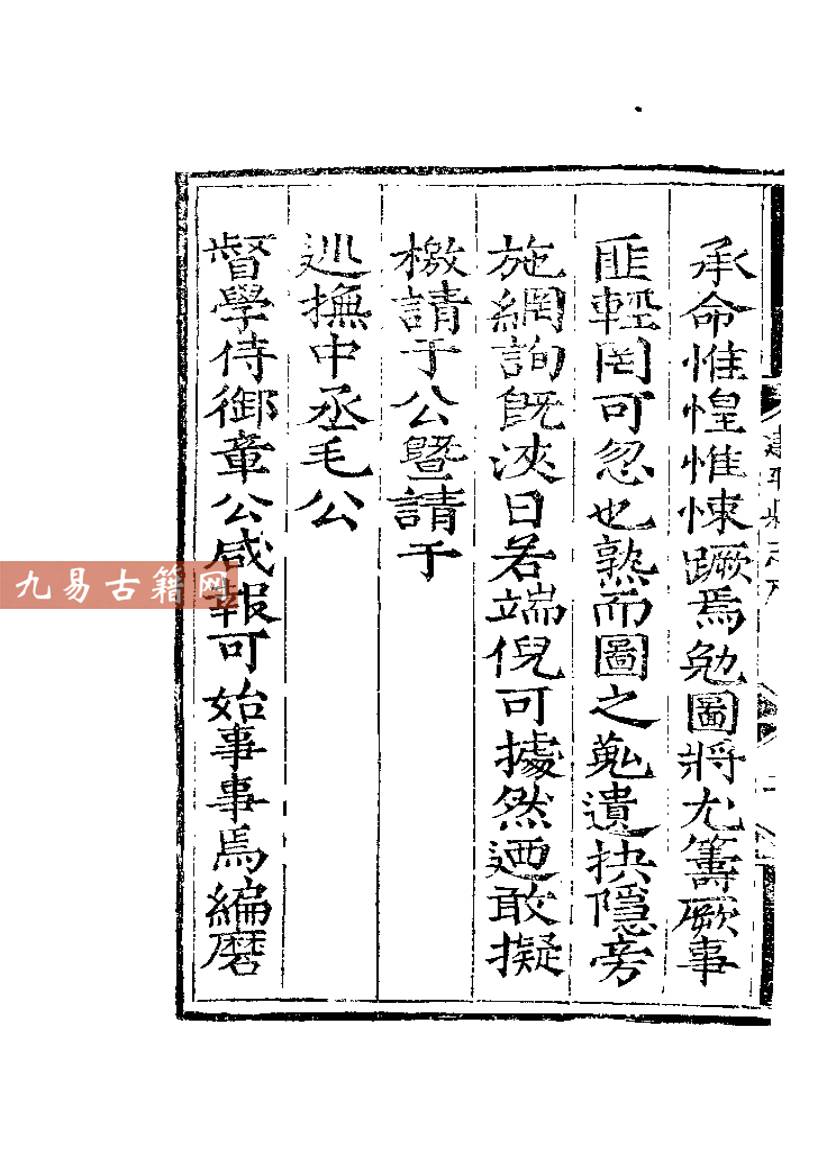 承命惟惶惟悚蹶焉勉圖將尤籌厥事
匪輕罔可忽也熟而圖之蒐遺抉隱旁
施網詢旣浹日若端倪可據然迺敢擬
檄請于公暨請于
巡撫中丞毛公
督學侍御章公咸報可始事事焉編磨
九易古籍网